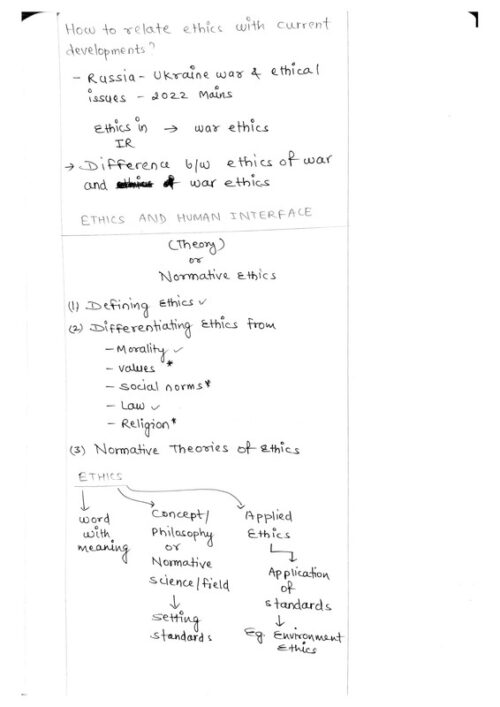 How to relate ethics with current
developments?
- Russia - Ukraine war & ethical
issues - 2022 Mains
Ethics in → war ethics
IR
→ Difference b/w ethics of war
and war ethics
ETHICS AND HUMAN INTERFACE
(Theory)
or
Normative Ethics
(1) Defining Ethics ✓
(2) Differentiating Ethics from
- Morality ✓
- values *
- Social norms *
- Law ✓
- Religion *
(3) Normative Theories of Ethics
ETHICS
word
with
meaning
Concept/
Philosophy
or
Normative
Science/field
↓
Setting
standards
Applied
Ethics
Application
of
standards
↓
Eg. Environment
Ethics